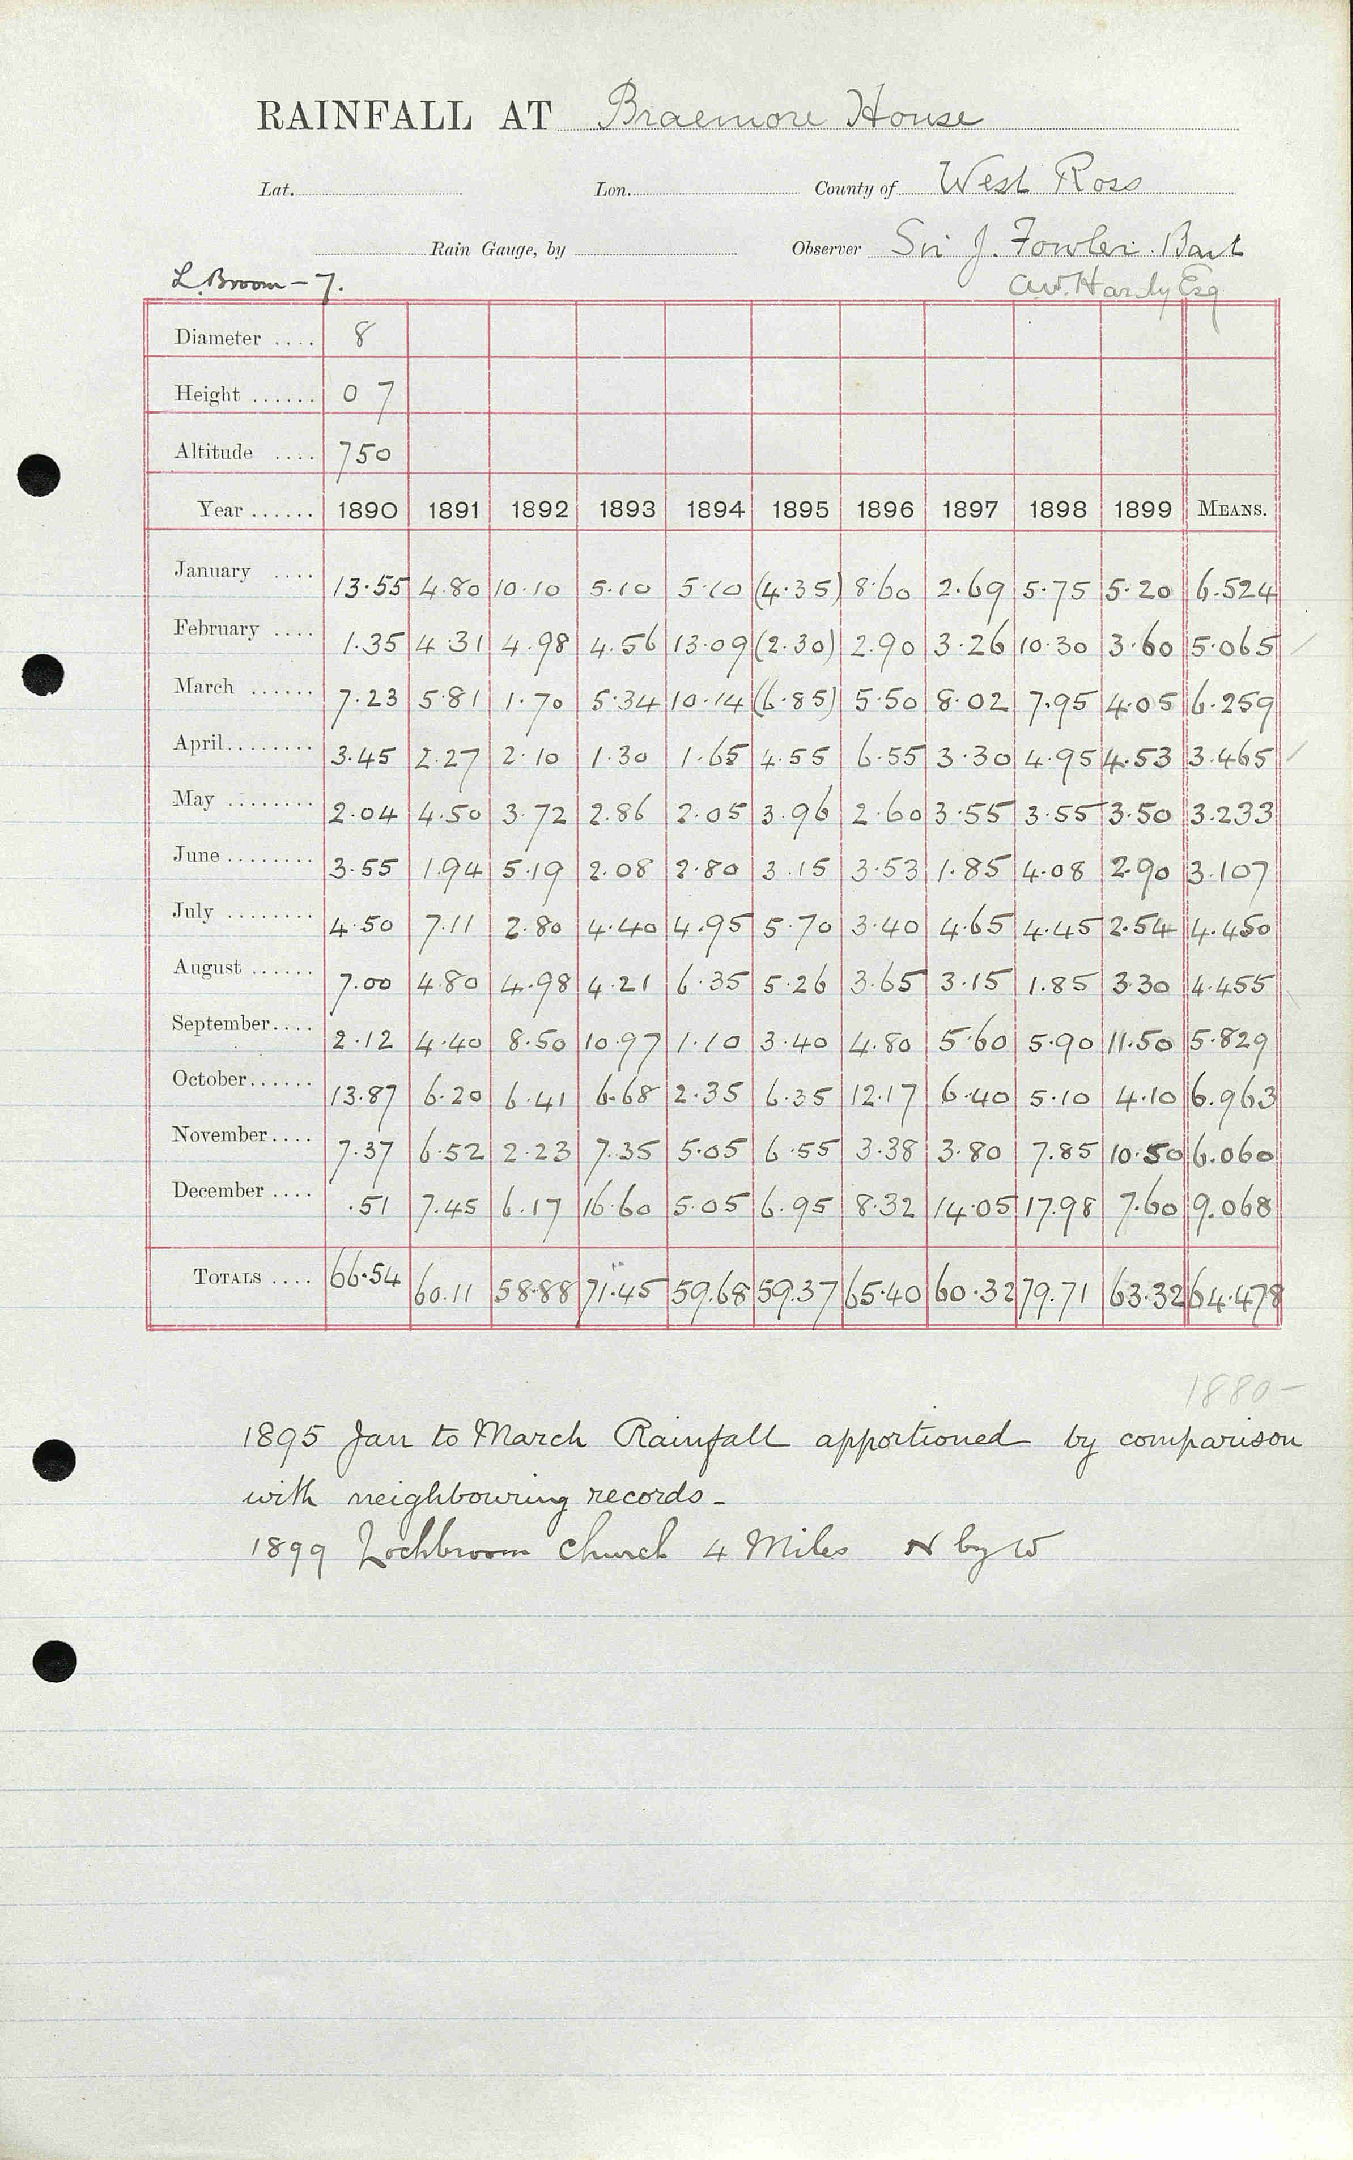 RAINFALL AT Braemore House
Lat. Lon. County of West Ross
Rain Gauge, by Observer Sir J. Fowler. Bart
L. Broom - 7. A.W. Hardy Esq
Diameter .... 8
Height ...... 0 7
Altitude .... 750
Year ...... 1890 1891 1892 1893 1894 1895 1896 1897 1898 1899 MEANS.
January .... 13.55 4.80 10.10 5.10 5.10 (4.35) 8.60 2.69 5.75 5.20 6.524
February .... 1.35 4.31 4.98 4.56 13.09 (2.30) 2.90 3.26 10.30 3.60 5.065
March ...... 7.23 5.81 1.70 5.34 10.14 (6.85) 5.50 8.02 7.95 4.05 6.259
April........ 3.45 2.27 2.10 1.30 1.65 4.55 6.55 3.30 4.95 4.53 3.465
May ........ 2.04 4.50 3.72 2.86 2.05 3.96 2.60 3.55 3.55 3.50 3.233
June ........ 3.55 1.94 5.19 2.08 2.80 3.15 3.53 1.85 4.08 2.90 3.107
July ........ 4.50 7.11 2.80 4.40 4.95 5.70 3.40 4.65 4.45 2.54 4.450
August ...... 7.00 4.80 4.98 4.21 6.35 5.26 3.65 3.15 1.85 3.30 4.455
September.... 2.12 4.40 8.50 10.97 1.10 3.40 4.80 5.60 5.90 11.50 5.829
October...... 13.87 6.20 6.41 6.68 2.35 6.35 12.17 6.40 5.10 4.10 6.963
November.... 7.37 6.52 2.23 7.35 5.05 6.55 3.38 3.80 7.85 10.50 6.060
December .... .51 7.45 6.17 16.60 5.05 6.95 8.32 14.05 17.98 7.60 9.068
TOTALS .... 66.54 60.11 58.88 71.45 59.68 59.37 65.40 60.32 79.71 63.32 64.478
1880-
1895 Jan to March Rainfall apportioned by comparison
with neighbouring records -
1899 Lochbroom church 4 Miles N by W